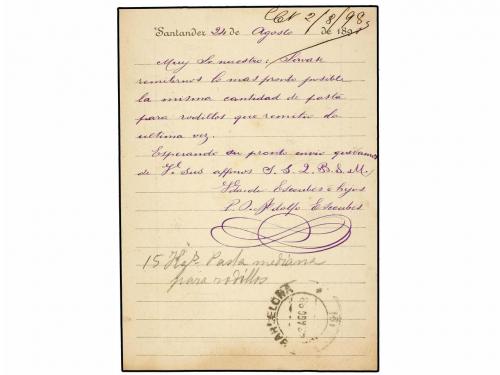 CN 2/8/98
Santander 24 de Agosto de 189
Muy Sr nuestro: Sirvase
remitirnos lo mas pronto posible
la misma cantidad de pasta
para rodillos que remitio la
ultima vez.
Esperando su pronto envio quedamos
de Vd Sus affmos S. S. Q. B. S. M.
Vda de Escubes e hijos
P. A. Adolfo Escubes
15 Kgs. Pasta mediana
para rodillos
BARCELONA
AGO 98